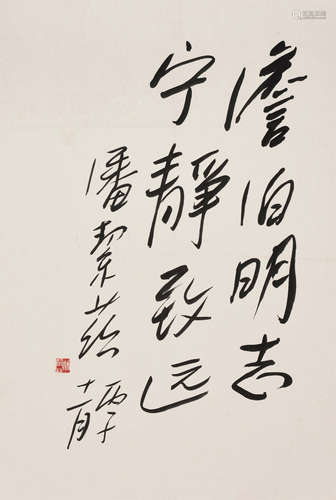 澹泊明志
宁静致远
潘絜兹
丙子
十月